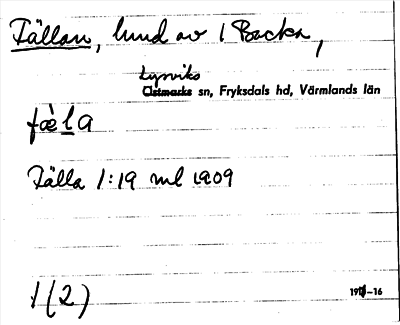 Tällan, hmd av 1 Backa,
Lysviks
Östmarks sn, Fryksdals hd, Värmlands län
fæ̀la
Tälla 1:19 ml 1909
1(2)
-16